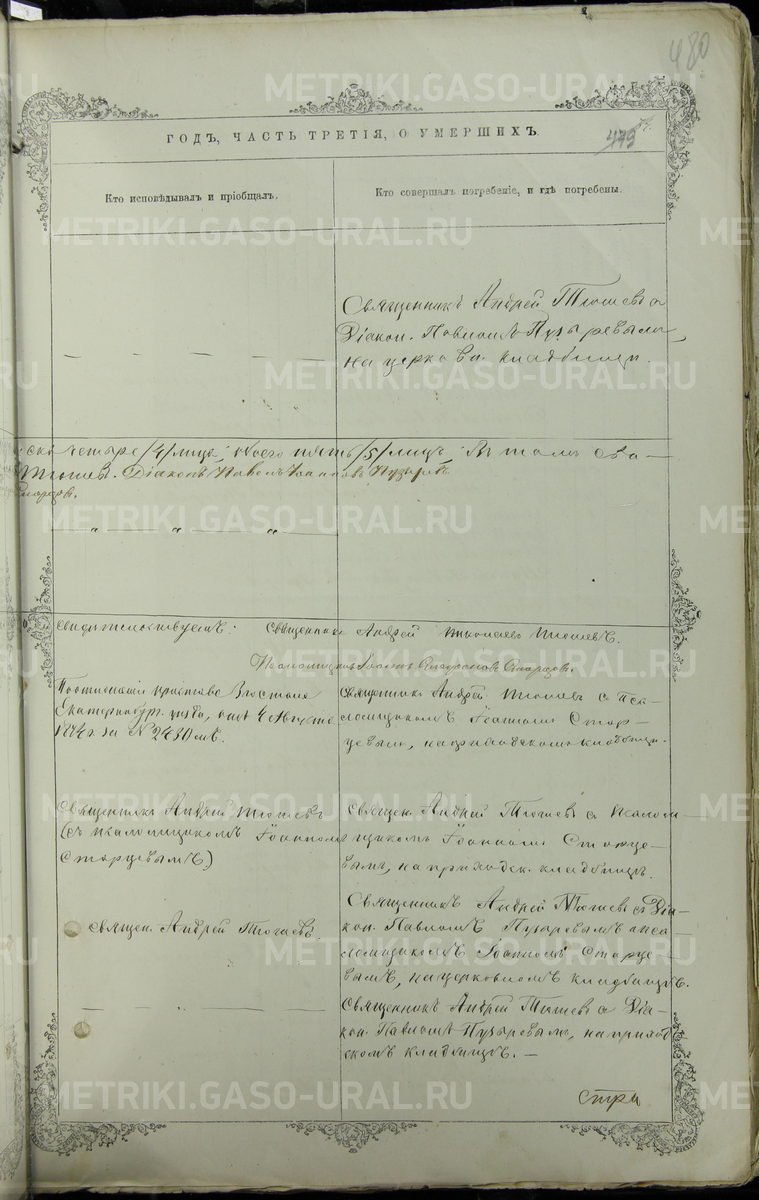 480
ГОДЪ, ЧАСТЬ ТРЕТІЯ, О УМЕРШИХЪ.
475
Кто исповѣдывалъ и пріобщалъ.
Кто совершалъ погребеніе, и гдѣ погребены.
Священникъ Андрей Тюшевъ с
Діакон. Павломъ Пузыревымъ,
на церковн. кладбищѣ.
четыре /4/ лицъ, обоего пять /5/ лицъ. Въ томъ
Тюшевъ. Діаконъ Павелъ Іоанновъ Пузыревъ
свидѣтельствуемъ: Священникъ Андрей Николаевъ Тюшевъ.
Псаломщикъ Іоаннъ Старцовъ.
Екатеринбург. уѣзда, отъ 4 Августа
1874 г. за № 2430мъ.
Священникъ Андрей Тюшевъ с Пса-
ломщикомъ Іоанномъ Стар-
цевымъ, на приходскомъ кладбищѣ.
Священникъ Андрей Тюшевъ
(съ псаломщикомъ Іоанномъ
Старцевымъ)
Священ. Андрей Тюшевъ с Псалом-
щикомъ Іоанномъ Старце-
вымъ, на приходск. кладбищѣ.
Священ. Андрей Тюшевъ.
Священникъ Андрей Тюшевъ с Діа-
кон. Павломъ Пузыревымъ и пса-
ломщикомъ Іоанномъ Старце-
вымъ, на церковномъ кладбищѣ.
Священникъ Андрей Тюшевъ с Діа-
кон. Павломъ Пузыревымъ, на приход-
скомъ кладбищѣ. —
METRIKI.GASO-URAL.RU